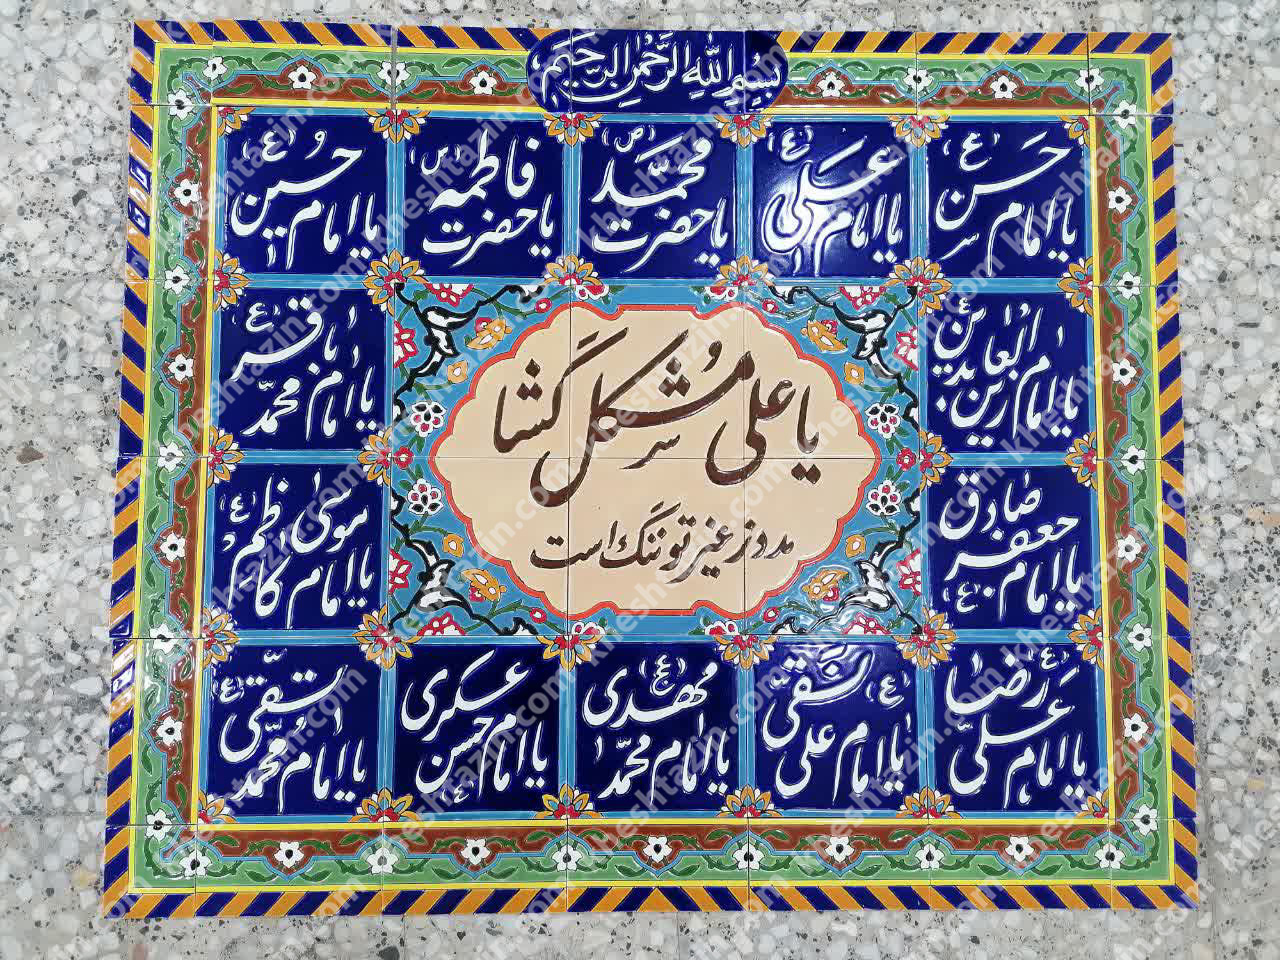 بسم الله الرحمن الرحیم
یا امام حسن (ع)
یا امام علی (ع)
یا حضرت محمد (ص)
یا حضرت فاطمه (س)
یا امام حسین (ع)
یا امام زین العابدین (ع)
یا امام محمد باقر (ع)
یا علی مشکل گشا
مدد ز غیر تو ننگ است
یا امام جعفر صادق (ع)
یا امام موسی کاظم (ع)
یا امام علی رضا (ع)
یا امام علی نقی (ع)
یا امام محمد مهدی (عج)
یا امام حسن عسکری (ع)
یا امام محمد تقی (ع)
kheshtazin.com